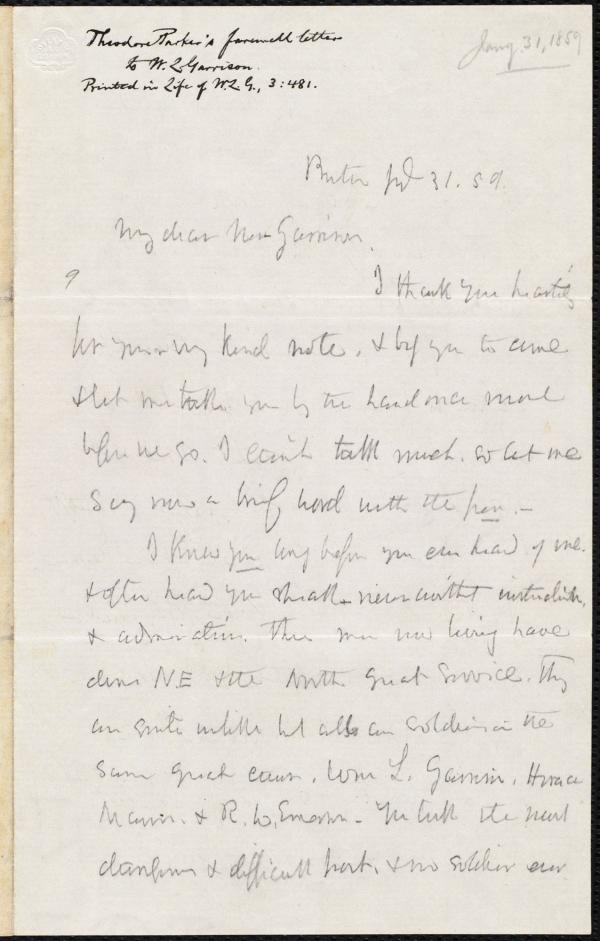 Theodore Parker's farewell letter
to W. L. Garrison.
Printed in Life of W. L. G., 3:481.
Jany 31, 1859
31. 59.
My dear Mr Garrison.
9
I thank you heartily
for your very kind note, & beg you to come
& let me take you by the hand once more
before we go. I can't talk much. so let me
say now a brief word with the pen. —
I knew you long before you ever heard of me.
& often heard you speak – never without instruction,
& admiration. Three men now living have
done N.E & the North great service. They
are quite unlike but all are soldiers in the
same great cause. Wm L. Garrison. Horace
Mann. & R. W. Emerson – You took the most
dangerous & difficult part. & no soldier ever